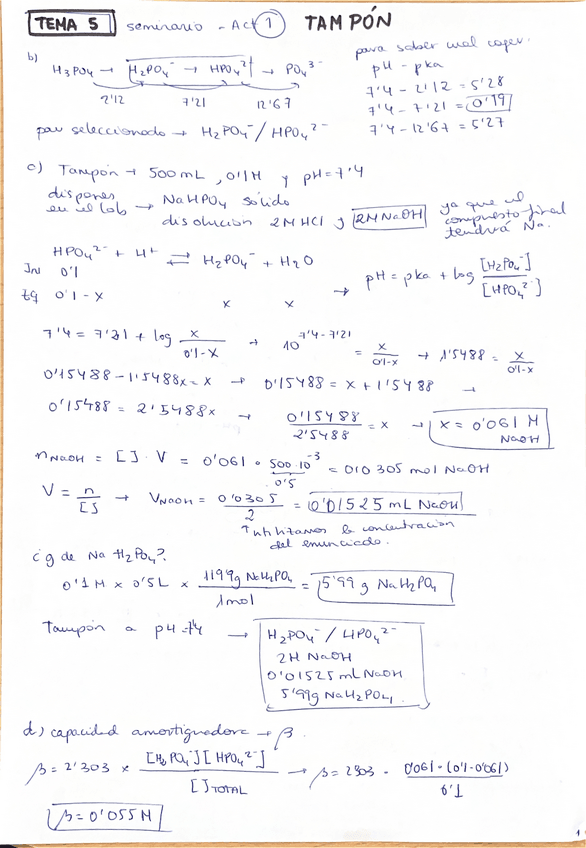 TEMA 5 seminario - Act 1 TAMPÓN
b)
H3PO4 → H2PO4⁻ → HPO4²⁻ → PO4³⁻
2'12 7'21 12'67
par seleccionado → H2PO4⁻ / HPO4²⁻
para saber cual coger.
pH - pka
7'4 - 2'12 = 5'28
7'4 - 7'21 = 0'19
7'4 - 12'67 = 5'27
c) Tampón → 500 mL, 0'1M y pH = 7'4
dispones en el lab → NaHPO4 sólido
disolución 2M HCl y 2M NaOH
ya que el
compuesto final
tendrá Na.
HPO4²⁻ + H⁺ ⇌ H2PO4⁻ + H2O
In 0'1
Eq 0'1 - x x x
→ pH = pka + log [H2PO4⁻] / [HPO4²⁻]
7'4 = 7'21 + log x / 0'1-x → 10^7'4-7'21 = x / 0'1-x → 1'5488 = x / 0'1-x
0'15488 - 1'5488x = x → 0'15488 = x + 1'5488 →
0'15488 = 2'5488x → 0'15488 / 2'5488 = x → x = 0'061 M NaOH
nNaOH = [ ] · V = 0'061 · 500·10⁻³ = 0'0305 mol NaOH
0'5
V = n / [ ] → VNaOH = 0'0305 / 2 = 0'01525 mL NaOH
↑ utilizamos la concentración
del enunciado.
¿g de NaH2PO4?
0'1M × 0'5L × 119'9g NaH2PO4 / 1mol = 5'99 g NaH2PO4
Tampón a pH=7'4 → H2PO4⁻ / HPO4²⁻
2M NaOH
0'01525 mL NaOH
5'99g NaH2PO4
d) capacidad amortiguadora → β
β = 2'303 × [H2PO4⁻][HPO4²⁻] / [ ]TOTAL → β = 2303 · 0'061 · (0'1-0'061) / 0'1
β = 0'055 M